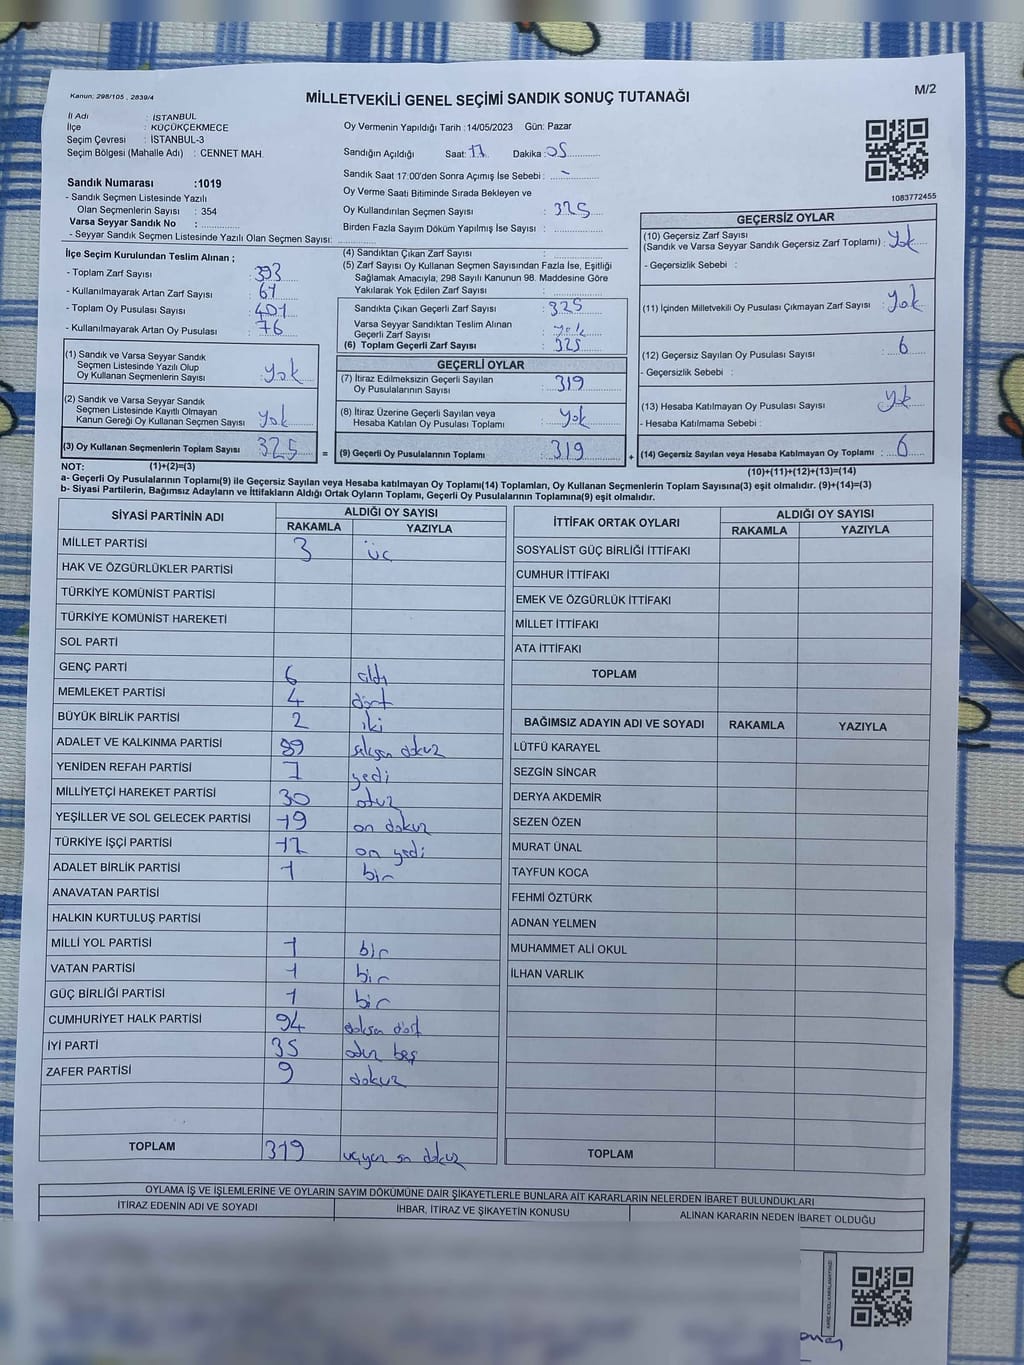 Kanun: 298/105 , 2839/4
MİLLETVEKİLİ GENEL SEÇİMİ SANDIK SONUÇ TUTANAĞI
M/2
İl Adı : İSTANBUL
İlçe : KÜÇÜKÇEKMECE
Seçim Çevresi : İSTANBUL-3
Seçim Bölgesi (Mahalle Adı) : CENNET MAH.
Oy Vermenin Yapıldığı Tarih :14/05/2023 Gün: Pazar
Sandığın Açıldığı Saat: 17 Dakika: 05
Sandık Saat 17:00'den Sonra Açımış İse Sebebi : -
Oy Verme Saati Bitiminde Sırada Bekleyen ve
Oy Kullandırılan Seçmen Sayısı : 325
Birden Fazla Sayım Döküm Yapılmış İse Sayısı :
1083772455
Sandık Numarası :1019
- Sandık Seçmen Listesinde Yazılı
Olan Seçmenlerin Sayısı : 354
Varsa Seyyar Sandık No :
- Seyyar Sandık Seçmen Listesinde Yazılı Olan Seçmen Sayısı:
İlçe Seçim Kurulundan Teslim Alınan ;
- Toplam Zarf Sayısı : 393
- Kullanılmayarak Artan Zarf Sayısı : 67
- Toplam Oy Pusulası Sayısı : 401
- Kullanılmayarak Artan Oy Pusulası : 76
(1) Sandık ve Varsa Seyyar Sandık
Seçmen Listesinde Yazılı Olup
Oy Kullanan Seçmenlerin Sayısı : yok
(2) Sandık ve Varsa Seyyar Sandık
Seçmen Listesinde Kayıtlı Olmayan
Kanun Gereği Oy Kullanan Seçmen Sayısı : yok
(3) Oy Kullanan Seçmenlerin Toplam Sayısı : 325
(4) Sandıktan Çıkan Zarf Sayısı :
(5) Zarf Sayısı Oy Kullanan Seçmen Sayısından Fazla İse, Eşitliği
Sağlamak Amacıyla; 298 Sayılı Kanunun 98. Maddesine Göre
Yakılarak Yok Edilen Zarf Sayısı :
Sandıkta Çıkan Geçerli Zarf Sayısı : 325
Varsa Seyyar Sandıktan Teslim Alınan
Geçerli Zarf Sayısı : yok
(6) Toplam Geçerli Zarf Sayısı : 325
GEÇERLİ OYLAR
(7) İtiraz Edilmeksizin Geçerli Sayılan
Oy Pusulalarının Sayısı : 319
(8) İtiraz Üzerine Geçerli Sayılan veya
Hesaba Katılan Oy Pusulası Toplamı : yok
= (9) Geçerli Oy Pusulalarının Toplamı : 319
GEÇERSİZ OYLAR
(10) Geçersiz Zarf Sayısı
(Sandık ve Varsa Seyyar Sandık Geçersiz Zarf Toplamı) : yok
- Geçersizlik Sebebi :
(11) İçinden Milletvekili Oy Pusulası Çıkmayan Zarf Sayısı : yok
(12) Geçersiz Sayılan Oy Pusulası Sayısı : 6
- Geçersizlik Sebebi :
(13) Hesaba Katılmayan Oy Pusulası Sayısı : yok
- Hesaba Katılmama Sebebi :
+ (14) Geçersiz Sayılan veya Hesaba Katılmayan Oy Toplamı : 6
NOT: (1)+(2)=(3)
(10)+(11)+(12)+(13)=(14)
a- Geçerli Oy Pusulalarının Toplamı(9) ile Geçersiz Sayılan veya Hesaba katılmayan Oy Toplamı(14) Toplamları, Oy Kullanan Seçmenlerin Toplam Sayısına(3) eşit olmalıdır. (9)+(14)=(3)
b- Siyasi Partilerin, Bağımsız Adayların ve İttifakların Aldığı Ortak Oyların Toplamı, Geçerli Oy Pusulalarının Toplamına(9) eşit olmalıdır.
SİYASİ PARTİNİN ADI ALDIĞI OY SAYISI
RAKAMLA YAZIYLA
MİLLET PARTİSİ 3 üç
HAK VE ÖZGÜRLÜKLER PARTİSİ
TÜRKİYE KOMÜNİST PARTİSİ
TÜRKİYE KOMÜNİST HAREKETİ
SOL PARTİ
GENÇ PARTİ 6 altı
MEMLEKET PARTİSİ 4 dört
BÜYÜK BİRLİK PARTİSİ 2 iki
ADALET VE KALKINMA PARTİSİ 89 seksen dokuz
YENİDEN REFAH PARTİSİ 7 yedi
MİLLİYETÇİ HAREKET PARTİSİ 30 otuz
YEŞİLLER VE SOL GELECEK PARTİSİ 19 on dokuz
TÜRKİYE İŞÇİ PARTİSİ 17 on yedi
ADALET BİRLİK PARTİSİ 1 bir
ANAVATAN PARTİSİ
HALKIN KURTULUŞ PARTİSİ
MİLLİ YOL PARTİSİ 1 bir
VATAN PARTİSİ 1 bir
GÜÇ BİRLİĞİ PARTİSİ 1 bir
CUMHURİYET HALK PARTİSİ 94 doksan dört
İYİ PARTİ 35 otuz beş
ZAFER PARTİSİ 9 dokuz
TOPLAM 319 üçyüz on dokuz
İTTİFAK ORTAK OYLARI ALDIĞI OY SAYISI
RAKAMLA YAZIYLA
SOSYALİST GÜÇ BİRLİĞİ İTTİFAKI
CUMHUR İTTİFAKI
EMEK VE ÖZGÜRLÜK İTTİFAKI
MİLLET İTTİFAKI
ATA İTTİFAKI
TOPLAM
BAĞIMSIZ ADAYIN ADI VE SOYADI RAKAMLA YAZIYLA
LÜTFÜ KARAYEL
SEZGİN SİNCAR
DERYA AKDEMİR
SEZEN ÖZEN
MURAT ÜNAL
TAYFUN KOCA
FEHMİ ÖZTÜRK
ADNAN YELMEN
MUHAMMET ALİ OKUL
İLHAN VARLIK
TOPLAM
OYLAMA İŞ VE İŞLEMLERİNE VE OYLARIN SAYIM DÖKÜMÜNE DAİR ŞİKAYETLERLE BUNLARA AİT KARARLARIN NELERDEN İBARET BULUNDUKLARI
İTİRAZ EDENİN ADI VE SOYADI İHBAR, İTİRAZ VE ŞİKAYETİN KONUSU ALINAN KARARIN NEDEN İBARET OLDUĞU